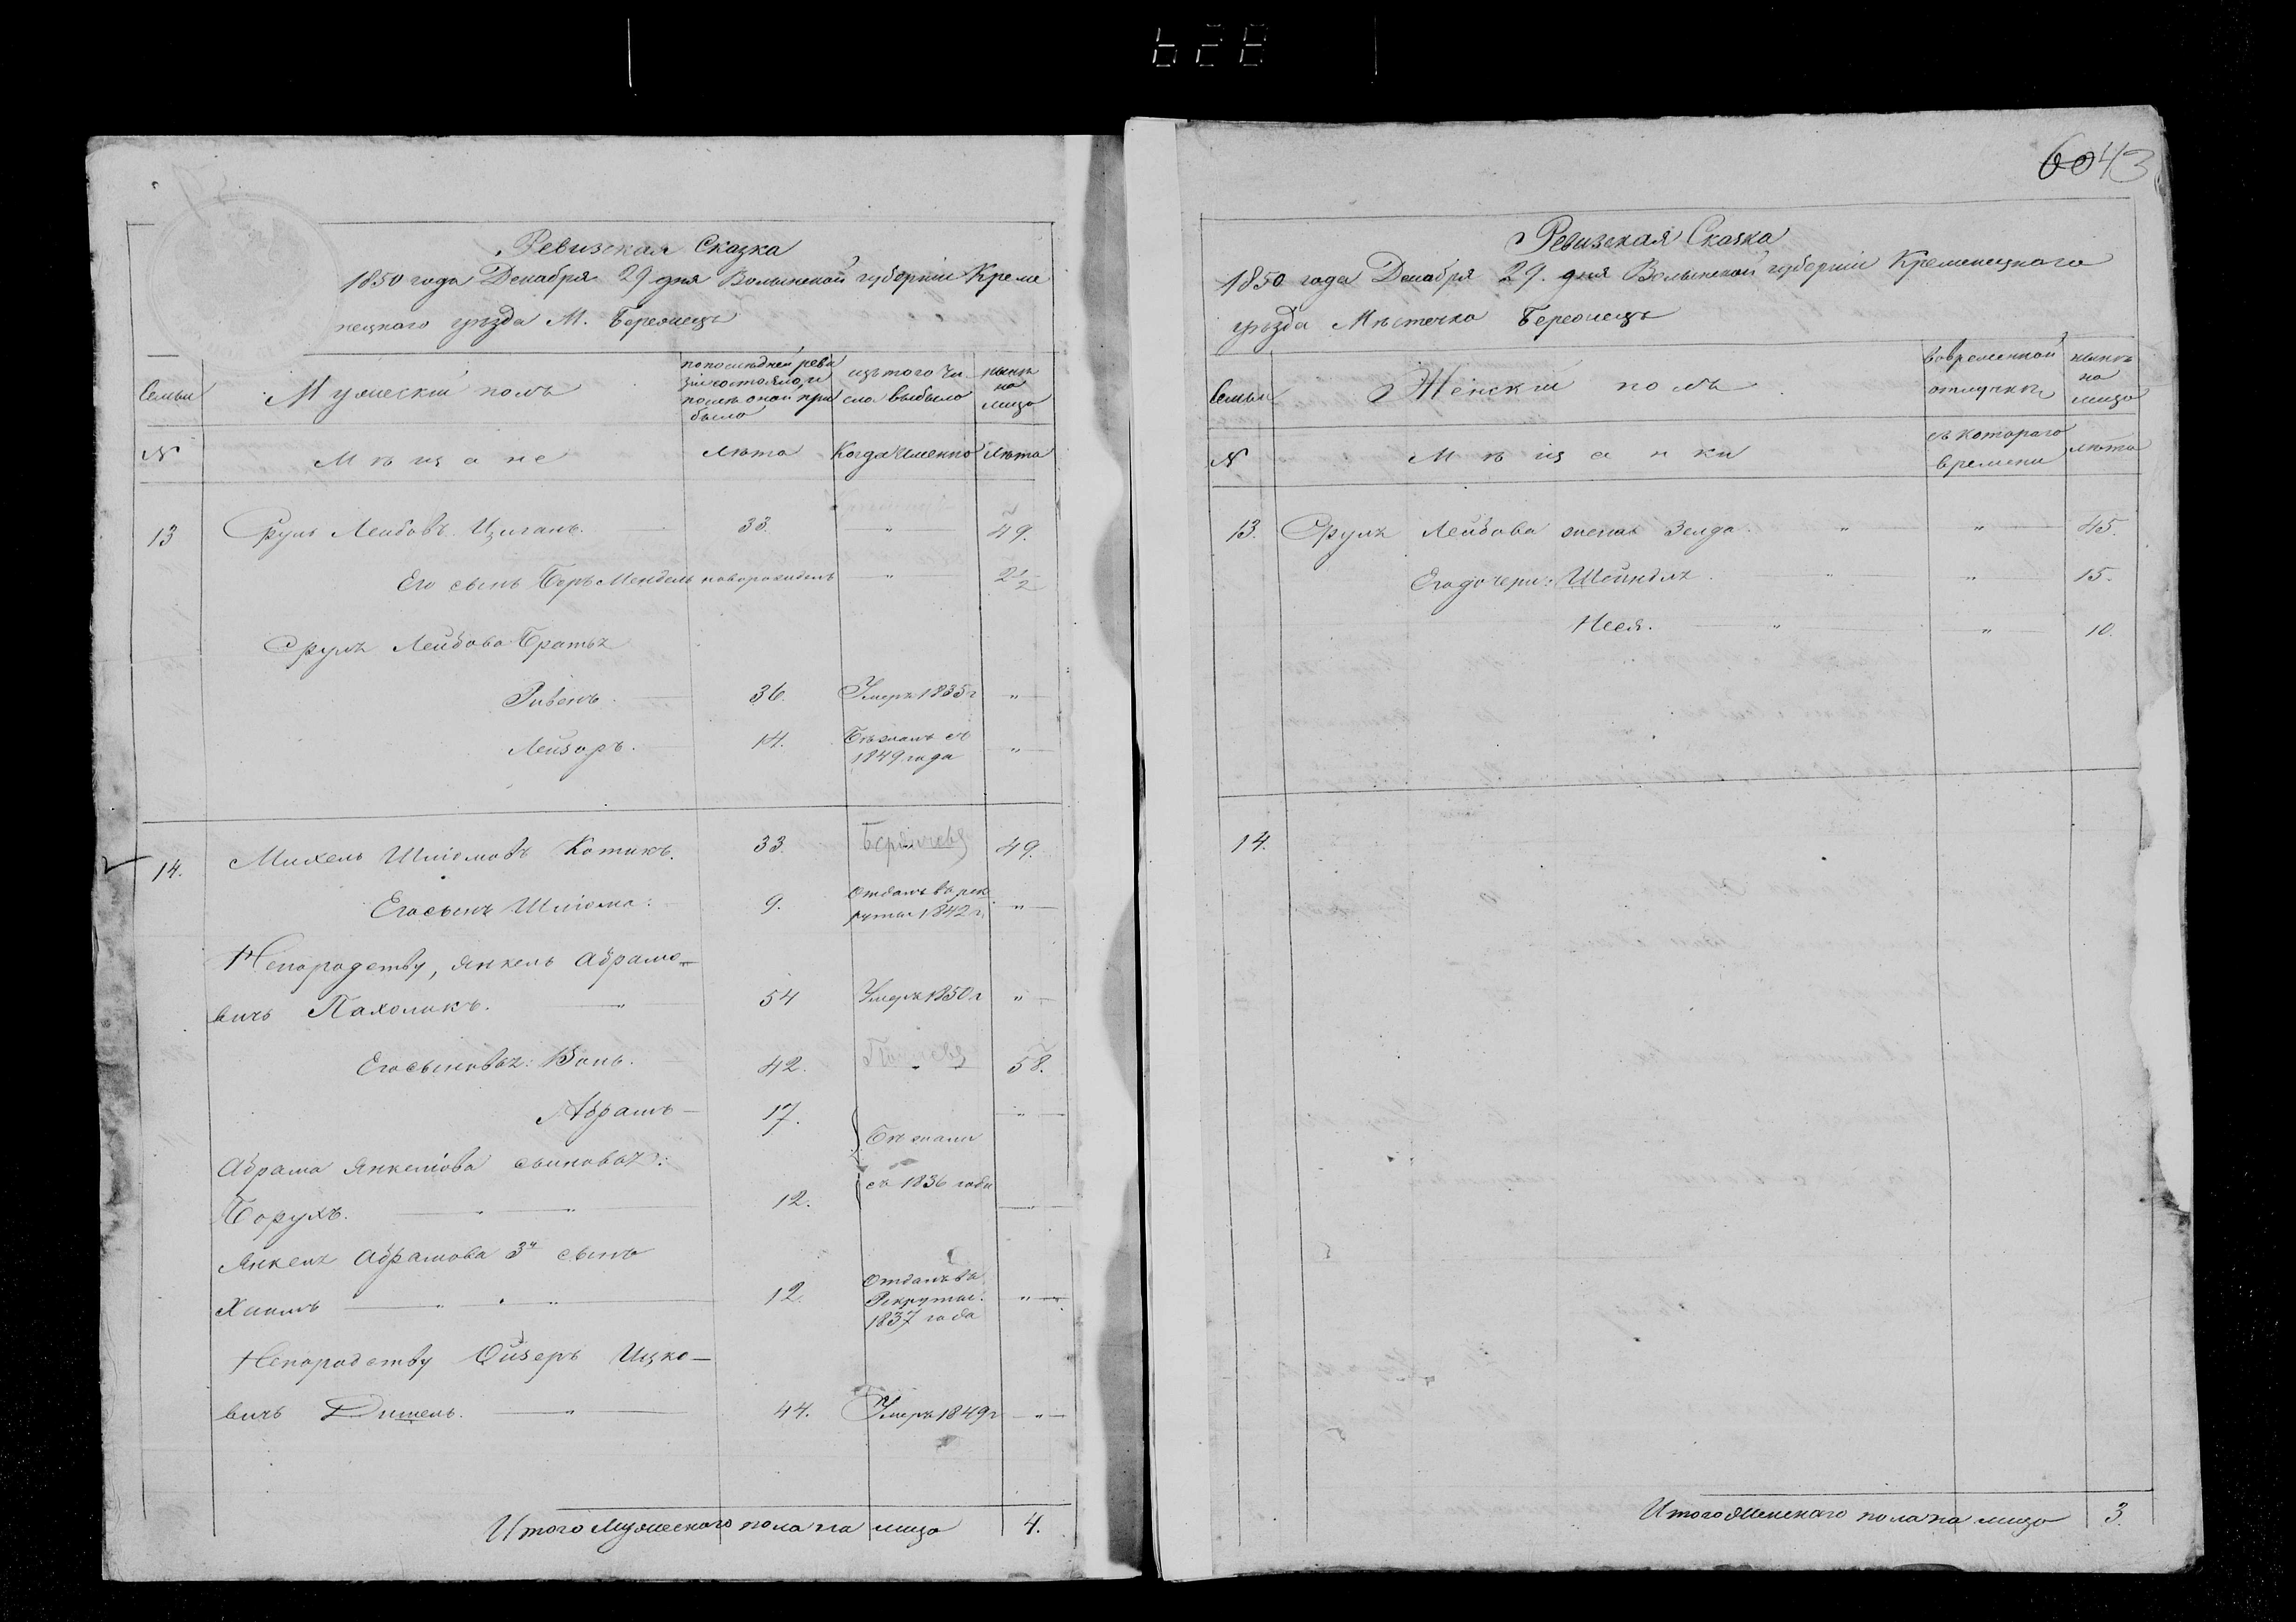 628
Ревизская Сказка
1850 года Декабря 29 дня Волынской губернии Креме
нецкаго уѣзда М. Бережецъ
Семьи
Мужескій полъ
по последней реви
зіи состояло, и
после оной при
было
изъ того чи
сла выбыло
нынѣ
на
лицо
№
Мѣщане
Лѣта
Когда именно
Лѣта
13
Сруль Лейбовъ Цыганъ.
33.
"
49.
Его сынъ Беръ Мендель
новорожденъ
"
2 1/2
Сруля Лейбова Братья
Ривенъ.
36.
Умеръ 1835 г
"
Лейзоръ.
14.
Бѣжалъ съ
1849 года
"
14.
Михель Шліомовъ Котикъ.
33
49.
Его сынъ Шліома.
9.
Отданъ въ рек
руты 1842 г.
"
Непородству, Янкель Абрамо-
вичъ Пахоликъ.
"
54
Умеръ 1850 г
"
Его сыновья:
42.
"
58.
Абрамъ
17.
"
Бѣжали
Абрама Янкеліова сыновья:
съ 1836 года
Борухъ.
"
"
12.
"
Янкеля Абрамова 3й сынъ
Хаимъ
"
"
12.
Отданъ въ
Рекруты
1837 года
"
Непородству Ойзеръ Ицко-
вичъ Дишель.
"
44.
Умеръ 1849 г
"
Итого Мужескаго пола на лицо
4.
60 43
Ревизская Сказка
1850 года Декабря 29. дня Волынской губерніи Кременецкаго
уѣзда Мѣстечка Бережецъ
Семьи
Женскій полъ
во временной
отлучкѣ
нынѣ
на
лицо
№
Мѣщанки
съ котораго
времени
лѣта
13.
Сруля Лейбова жена Зелда.
"
"
45.
Его дочери: Шейндля
"
"
15.
Неся.
"
"
10.
14.
Итого Женскаго пола на лицо
3.